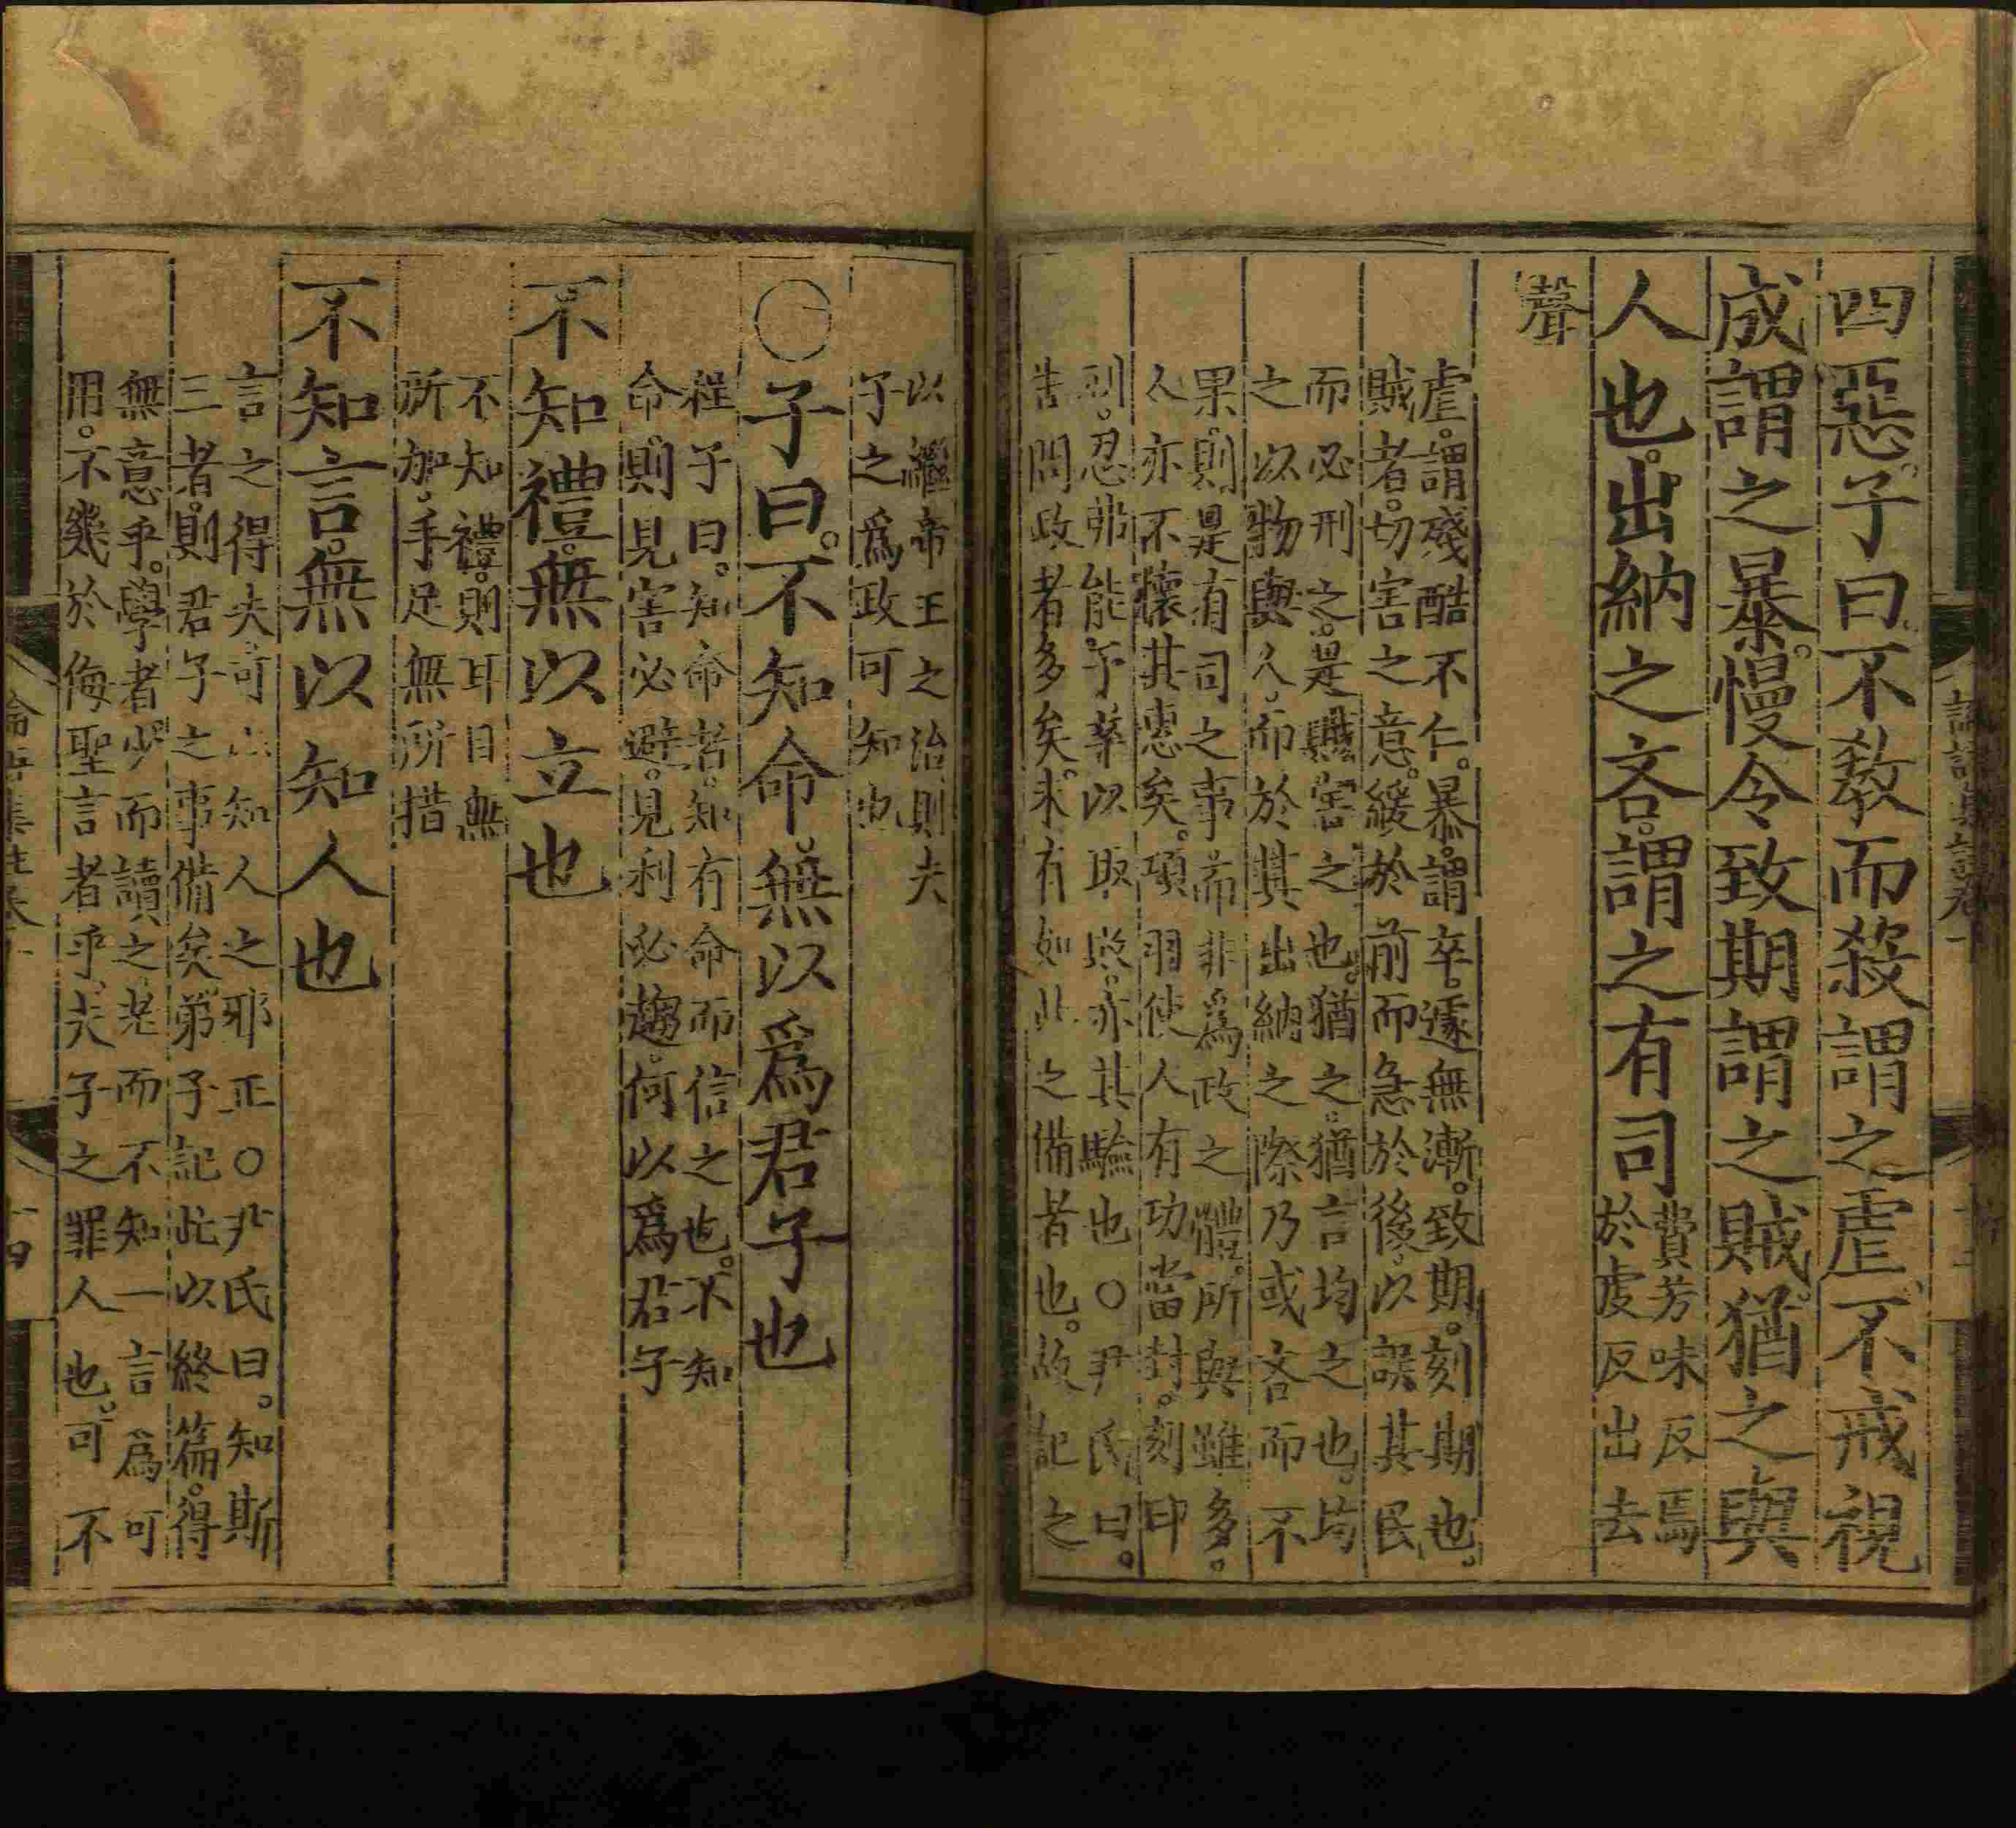 四惡。子曰。不教而殺。謂之虐。不戒視
成。謂之暴。慢令致期。謂之賊。猶之與
人也。出納之吝。謂之有司
費芳味反焉
於虔反出去
聲
虐。謂殘酷不仁。暴。謂卒遽無漸。致期。刻期也。
賊者。切害之意。緩於前而急於後。以誤其民
而必刑之。是賊害之也。猶之。猶言均之也。均
之以物與人。而於其出納之際乃或吝而不
果。則是有司之事。而非爲政之體。所與雖多。
人亦不懷其惠矣。項羽使人有功當封。刻印
刓。忍弗能予。卒以取敗。亦其驗也○尹氏曰。
告問政者多矣。未有如此之備者也。故記之
以繼帝王之治。則夫
子之爲政可知也
○子曰。不知命。無以爲君子也
程子曰。知命者。知有命而信之也。不知
命。則見害必避。見利必趨。何以爲君子
不知禮。無以立也
不知禮。則耳目無
所加。手足無所措
不知言。無以知人也
言之得失。可以知人之邪正○尹氏曰。知斯
三者。則君子之事備矣。弟子記此以終篇。得
無意乎。學者少而讀之。老而不知一言爲可
用。不幾於侮聖言者乎。夫子之罪人也。可不